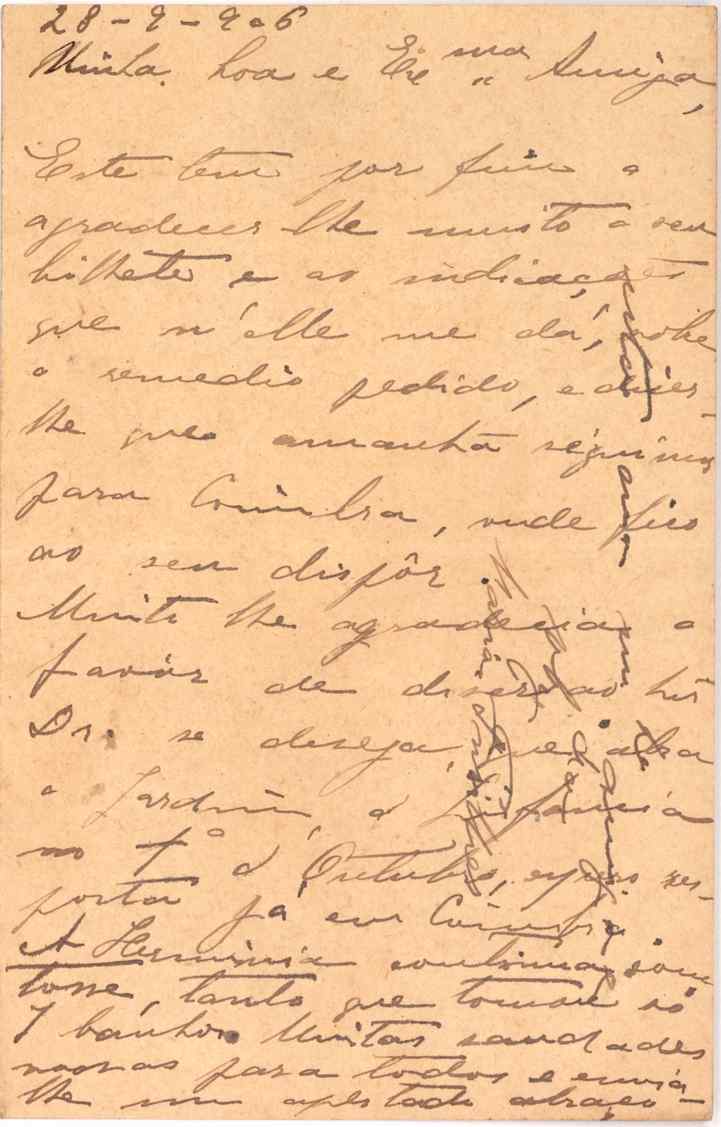 28-9-906
Minha boa e Ex.ma Amiga,
Este tem por fim o
agradecer-lhe muito o seu
bilhete e as indicações
que n'elle me dá,
o remedio pedido, e dizer-
lhe que amanhã seguimos
para Coimbra, onde fico
ao seu dispôr
Muito lhe agradecia o
favôr de dizer ao Snr
Dr. se deseja que abra
o Jardim d'Infancia
no 1º d'Outubro, espero res-
posta já em Coimbra
A Herminia continua com
tosse, tanto que tomou só
7 banhos. Muitas saudades
nossas para todos e envia-
lhe um apertado abraço